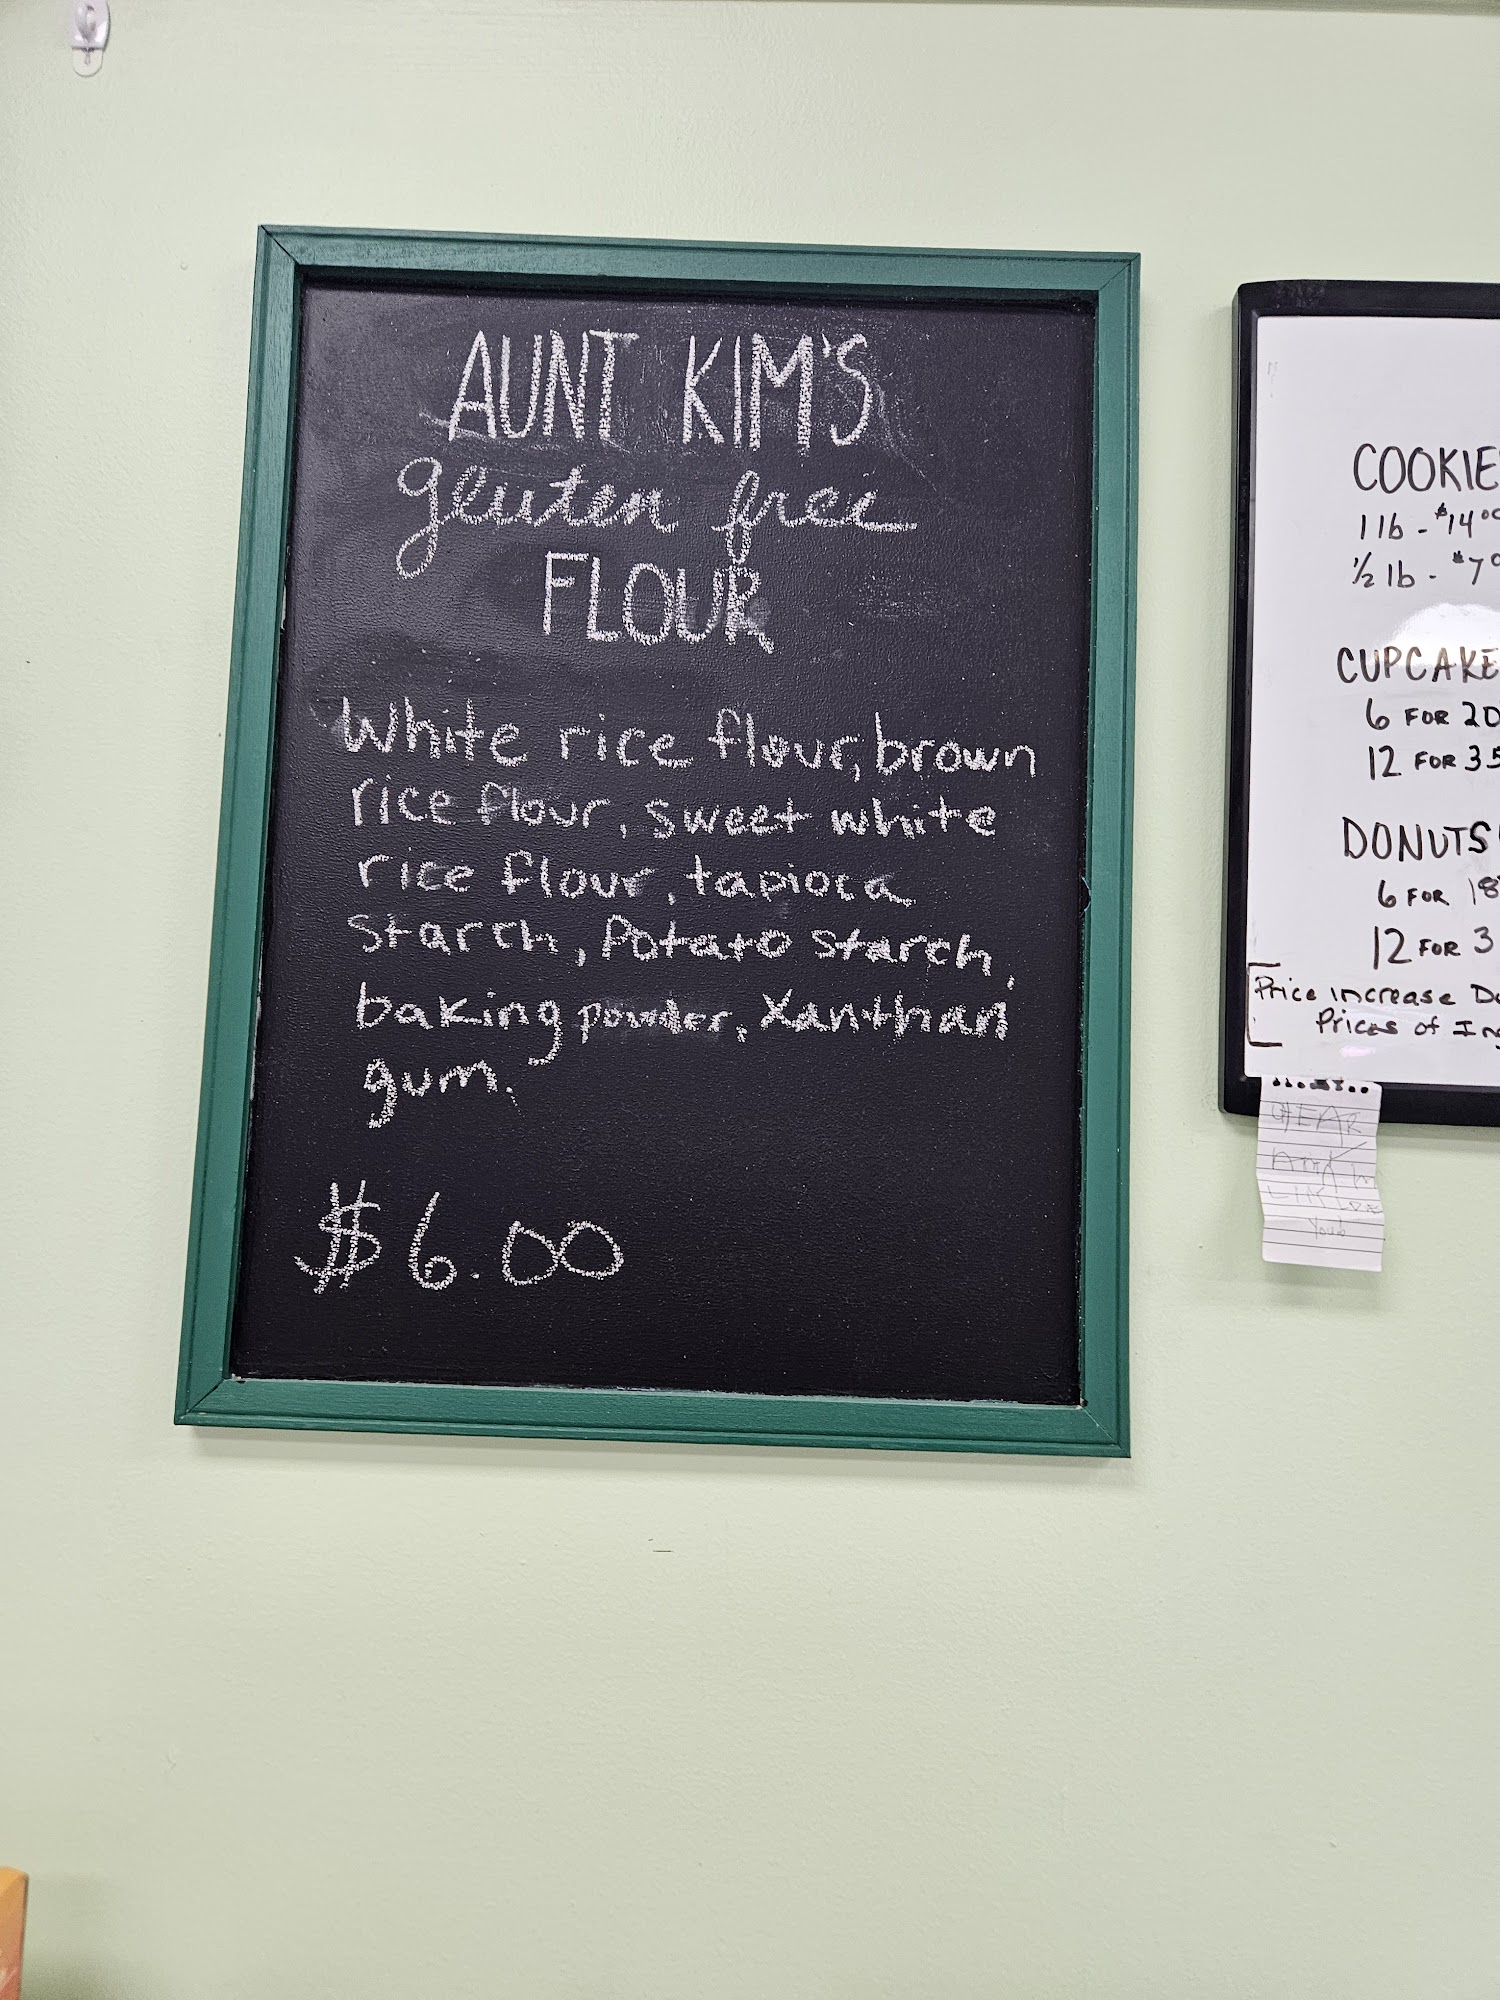 AUNT KIM'S
gluten free
FLOUR
White rice flour, brown
rice flour, sweet white
rice flour, tapioca
starch, Potato starch,
baking powder, Xanthan
gum.
$6.00
COOKIE
1 lb - $14.00
1/2 lb - $7
CUPCAKE
6 FOR 20
12 FOR 35
DONUTS
6 FOR 18
12 FOR 3
Price increase
Prices of